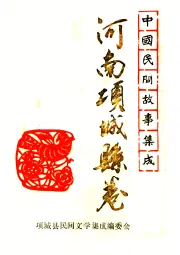 中國民间故事集成
河南項城縣卷
项城县民间文学集成编委会